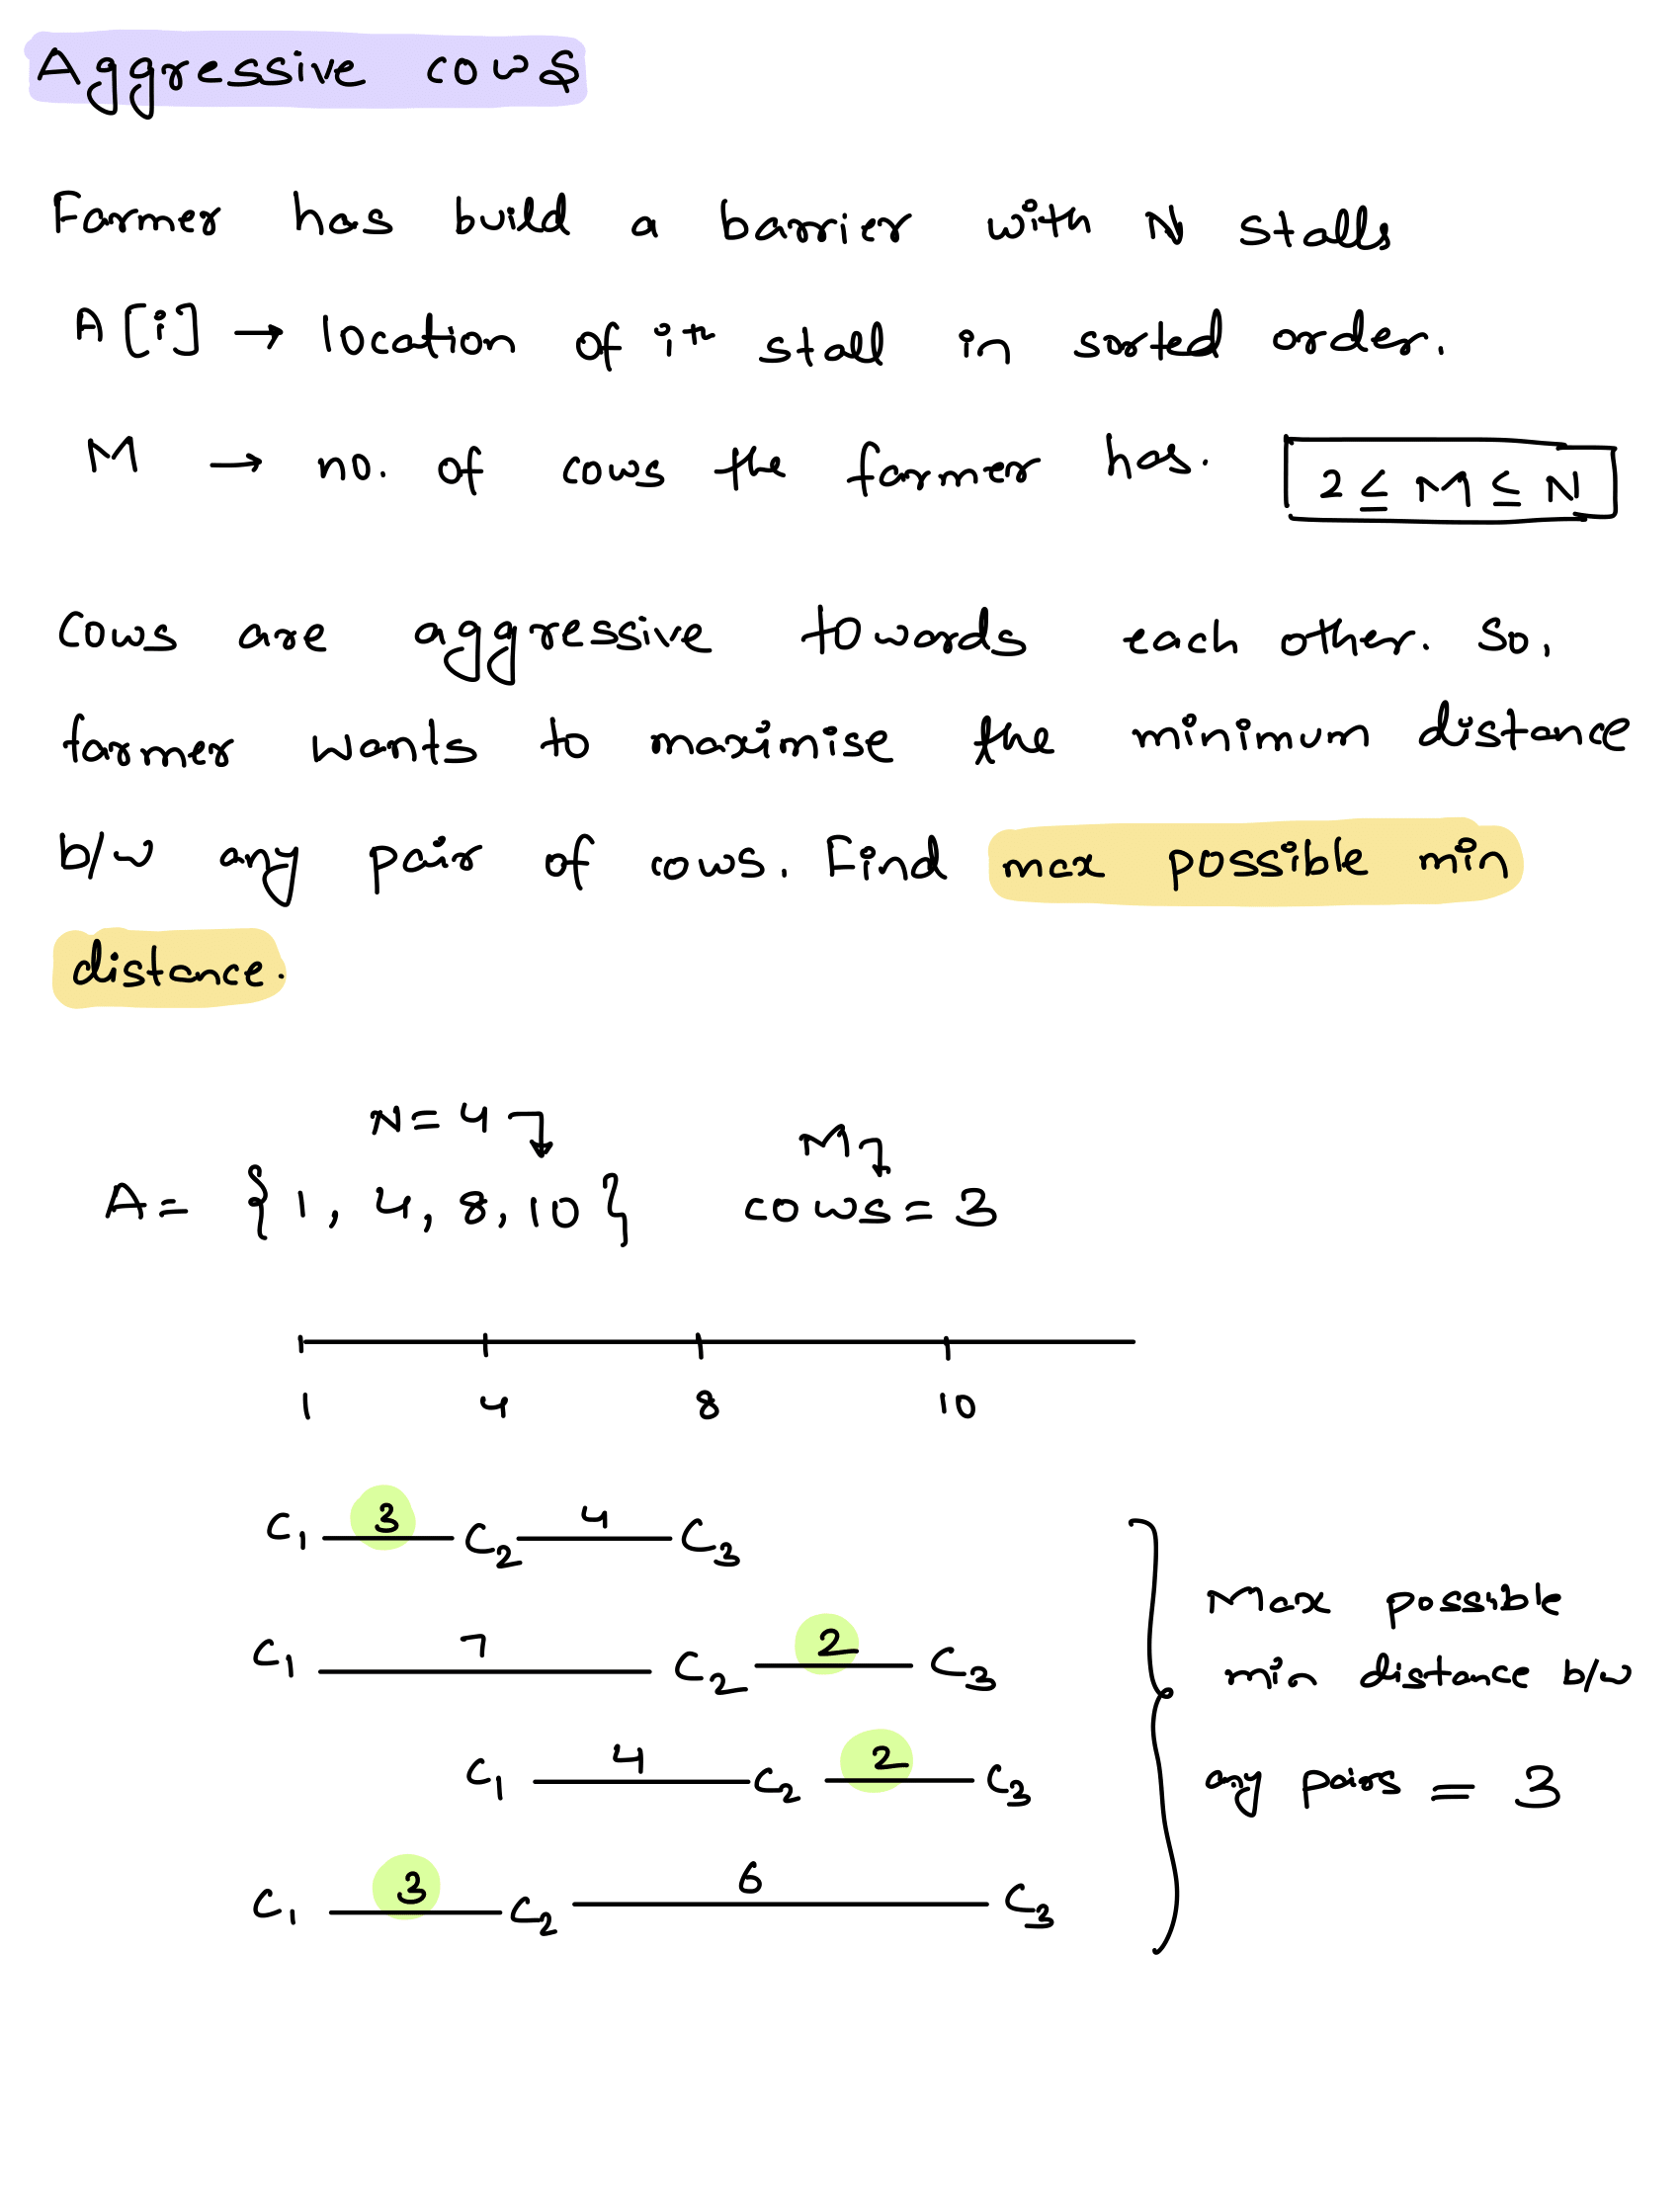 Aggressive cows
Farmer has build a barrier with N stalls
A[i] → location of ith stall in sorted order.
M → no. of cows the farmer has. 2 ≤ M ≤ N
Cows are aggressive towards each other. So,
farmer wants to maximise the minimum distance
b/w any pair of cows. Find max possible min
distance.
N=4 M
A= {1, 4, 8, 10} cows = 3
1 4 8 10
C1 3 C2 4 C3
C1 7 C2 2 C3
C1 4 C2 2 C3
C1 3 C2 6 C3
Max possible
min distance b/w
any pairs = 3